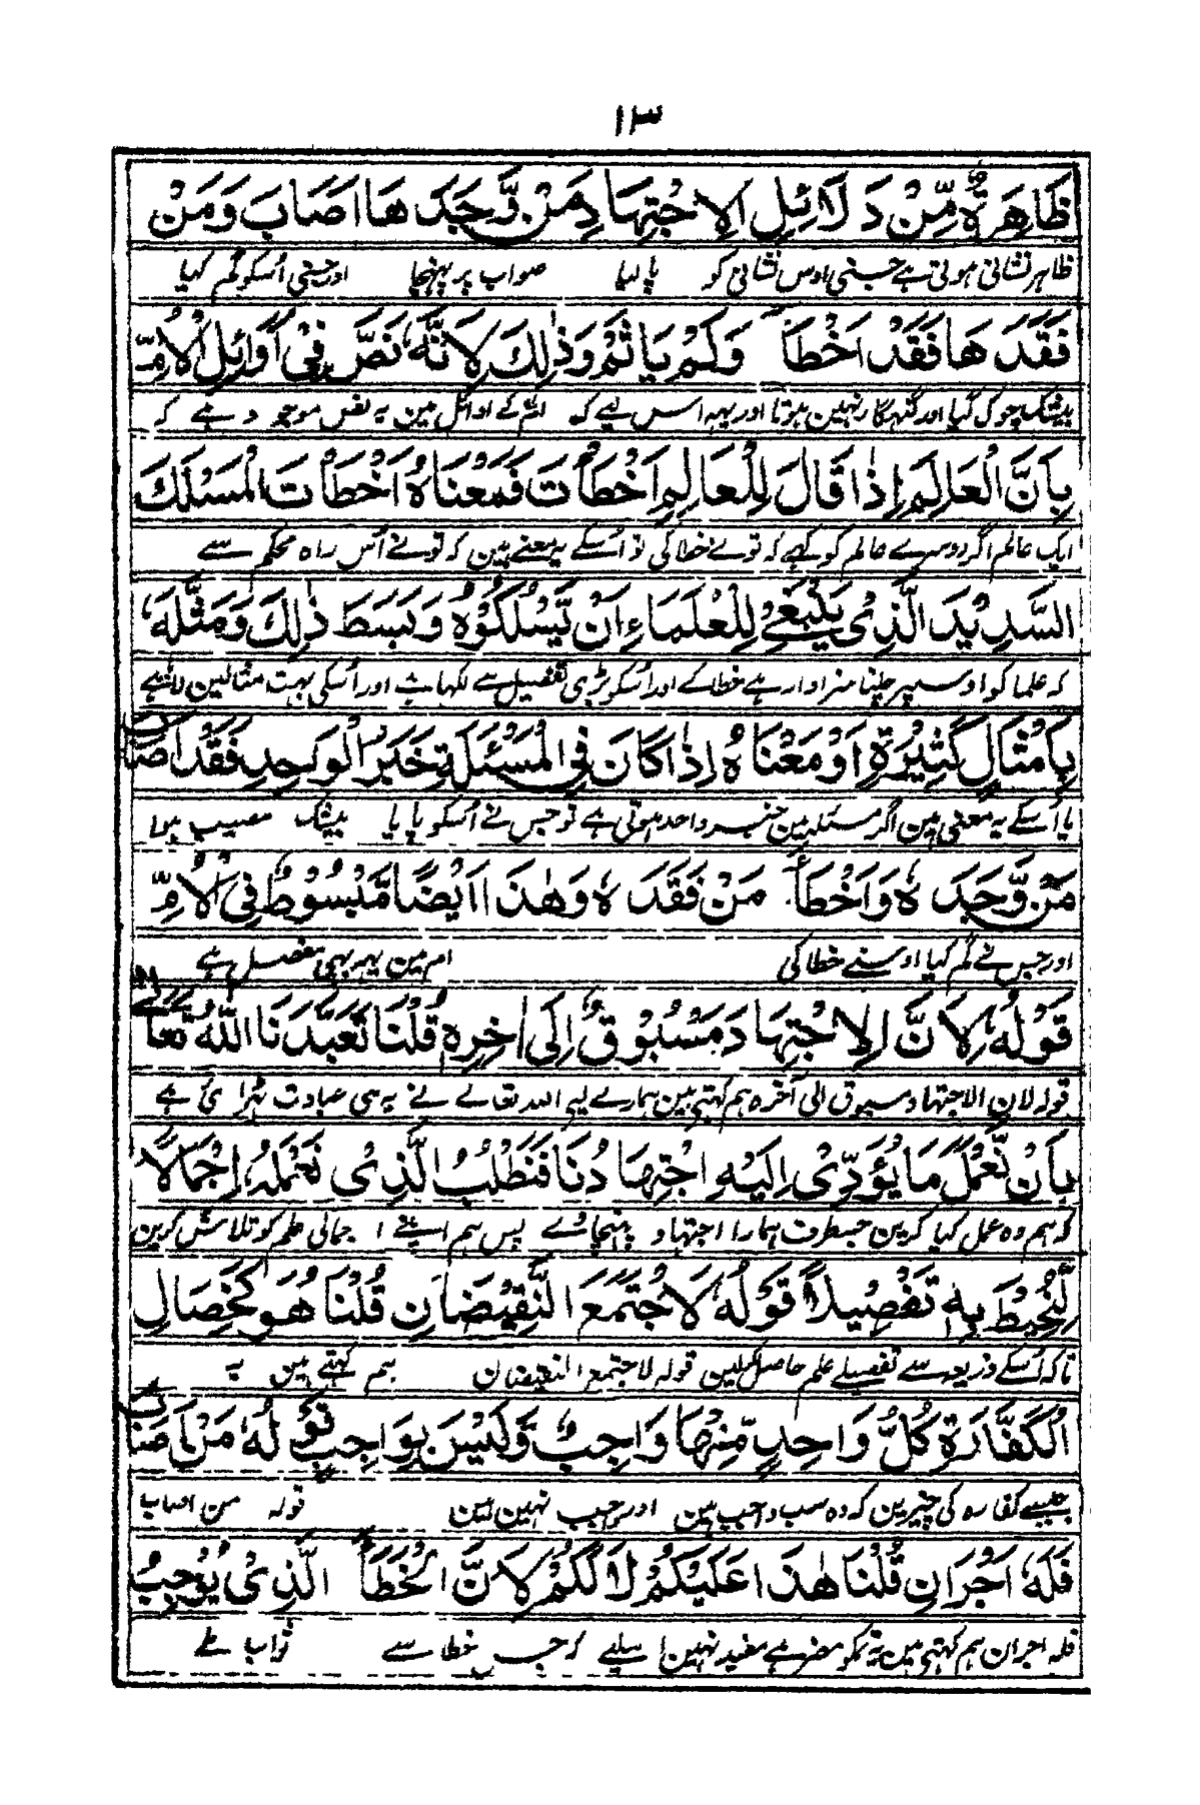 ١٣
ظَاهِرَةٌ مِّنْ دَلَائِلِ الِاجْتِهَادِ مَنْ وَّجَدَ هَا اَصَابَ وَمَنْ
ظاہر نشانی ہوتی ہے جسنی اوس نشانی کو پا لیا صواب پر پہنچا اور جسنی اُسکو گم کیا
فَقَدَ هَا فَقَدْ اَخْطَأَ وَلَمْ يَاثَمْ وَذٰلِكَ لِاَنَّهٗ نَصَّ فِيْ اَوَائِلِ الْاُمِّ
بیشک چوک گیا اور گنہگار نہین ہوتا اور یہہ اس لیے کہ اُم کے اوائل مین یہ نص موجود ہے کہ
بِاَنَّ الْعَالِمَ اِذَا قَالَ لِلْعَالِمِ اَخْطَأْتَ فَمَعْنَاهُ اَخْطَأْتَ الْمَسْلَكَ
ایک عالم اگر دوسرے عالم کو کہے کہ تونے خطا کی تو اُسکے یہ معنے ہین کہ تونے اُس راہ محکم سے
السَّدِيْدَ الَّذِىْ يَنْبَغِىْ لِلْعُلَمَاءِ اَنْ يَّسْلُكُوْهُ وَبَسَطَ ذٰلِكَ وَمَثَّلَهٗ
کہ علما کو اوسپر چلنا سزاوار ہے خطا کے اور اُسکو بڑی تفصیل سے لکھا ہے اور اُسکی بہت مثالین لائے ہے
بِاَمْثَالٍ كَثِيْرَةٍ اَوْ مَعْنَاهُ اِذَا كَانَ فِى الْمَسْئَلَةِ خَبَرُ الْوَاحِدِ فَقَدْ اَصَابَ
یا اُسکے یہ معنی ہین اگر مسئلہ مین خبر واحد ہوتی ہے تو جس نے اُسکو پایا بیشک مصیب ہوا
مَنْ وَّجَدَهٗ وَاَخْطَأَ مَنْ فَقَدَهٗ وَهٰذَا اَيْضًا مَّبْسُوْطٌ فِى الْاُمِّ
اور جس نے گم کیا اوسنے خطا کی ام مین یہہ بھی مفصل ہے
قَوْلُهٗ لِاَنَّ الِاجْتِهَادَ مَسْبُوْقٌ اِلٰى اٰخِرِهٖ قُلْنَا تَعَبَّدَنَا اللّٰهُ تَعَالٰى
قولہ لان الاجتہاد مسبوق الی آخرہ ہم کہتے ہین ہمارے لیے اللہ تعالے نے یہ ہی عبادت ٹہرائی ہے
بِاَنْ نَّعْمَلَ مَا يُؤَدِّىْ اِلَيْهِ اجْتِهَادُنَا فَنَطْلُبُ الَّذِىْ نَعْمَلُهٗ اِجْمَالًا
کہ ہم وہ عمل کیا کرین جسطرف ہمارا اجتہاد پہنچاوے پس ہم اپنے اجمالی علم کو تلاش کرین
لِّنُحِيْطَ بِهٖ تَفْصِيْلًا قَوْلُهٗ لَاجْتَمَعَ النَّقِيْضَانِ قُلْنَا هُوَ كَخِصَالِ
تاکہ اُسکے ذریعہ سے تفصیلے علم حاصل کرلین قولہ لاجتمع النقیضان ہم کہتے ہین یہ
الْكَفَّارَةِ كُلُّ وَاحِدٍ مِّنْهَا وَاجِبٌ وَّلَيْسَ بِوَاجِبٍ قَوْلُهٗ مَنْ اَصَابَ
جیسے کفارہ کی چیزین کہ وہ سب واجب ہین اور واجب نہین ہین قولہ من اصاب
فَلَهٗ اَجْرَانِ قُلْنَا هٰذَا عَلَيْكُمْ لَا لَكُمْ لِاَنَّ الْخَطَأَ الَّذِىْ يُوْجِبُ
فلہ اجران ہم کہتے ہین یہ تمکو مضر ہے مفید نہین اسلیے کہ جس خطا سے ثواب ملے